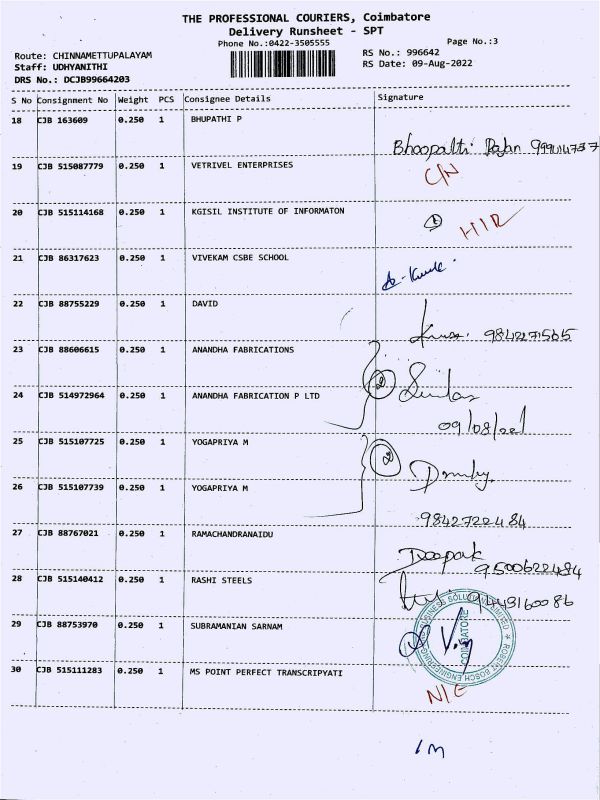 THE PROFESSIONAL COURIERS, Coimbatore
Delivery Runsheet - SPT
Phone No.:0422-3505555
Page No.:3
Route: CHINNAMETTUPALAYAM
RS No.: 996642
Staff: UDHYANITHI
RS Date: 09-Aug-2022
DRS No.: DCJB99664203
S No Consignment No Weight PCS Consignee Details Signature
18 CJB 163609 0.250 1 BHUPATHI P
19 CJB 515087779 0.250 1 VETRIVEL ENTERPRISES
C/N
20 CJB 515114168 0.250 1 KGISIL INSTITUTE OF INFORMATON
21 CJB 86317623 0.250 1 VIVEKAM CSBE SCHOOL
22 CJB 88755229 0.250 1 DAVID
9842271565
23 CJB 88606615 0.250 1 ANANDHA FABRICATIONS
24 CJB 514972964 0.250 1 ANANDHA FABRICATION P LTD
25 CJB 515107725 0.250 1 YOGAPRIYA M
26 CJB 515107739 0.250 1 YOGAPRIYA M
9842722484
27 CJB 88767021 0.250 1 RAMACHANDRANAIDU
Deepak
9500622484
28 CJB 515140412 0.250 1 RASHI STEELS
9443160086
29 CJB 88753970 0.250 1 SUBRAMANIAN SARNAM
ROBERT BOSCH ENGINEERING BUSINESS SOLUTIONS LIMITED
COIMBATORE
30 CJB 515111283 0.250 1 MS POINT PERFECT TRANSCRIPYATI